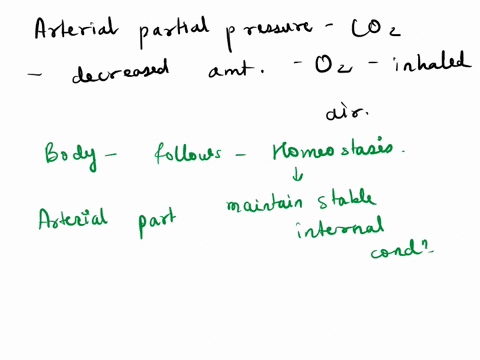 Arterial partial pressure - CO2
- decreased amt. - O2 - inhaled
air.
Body - follows - Homeostasis.
↓
Arterial part maintain stable
internal
condn